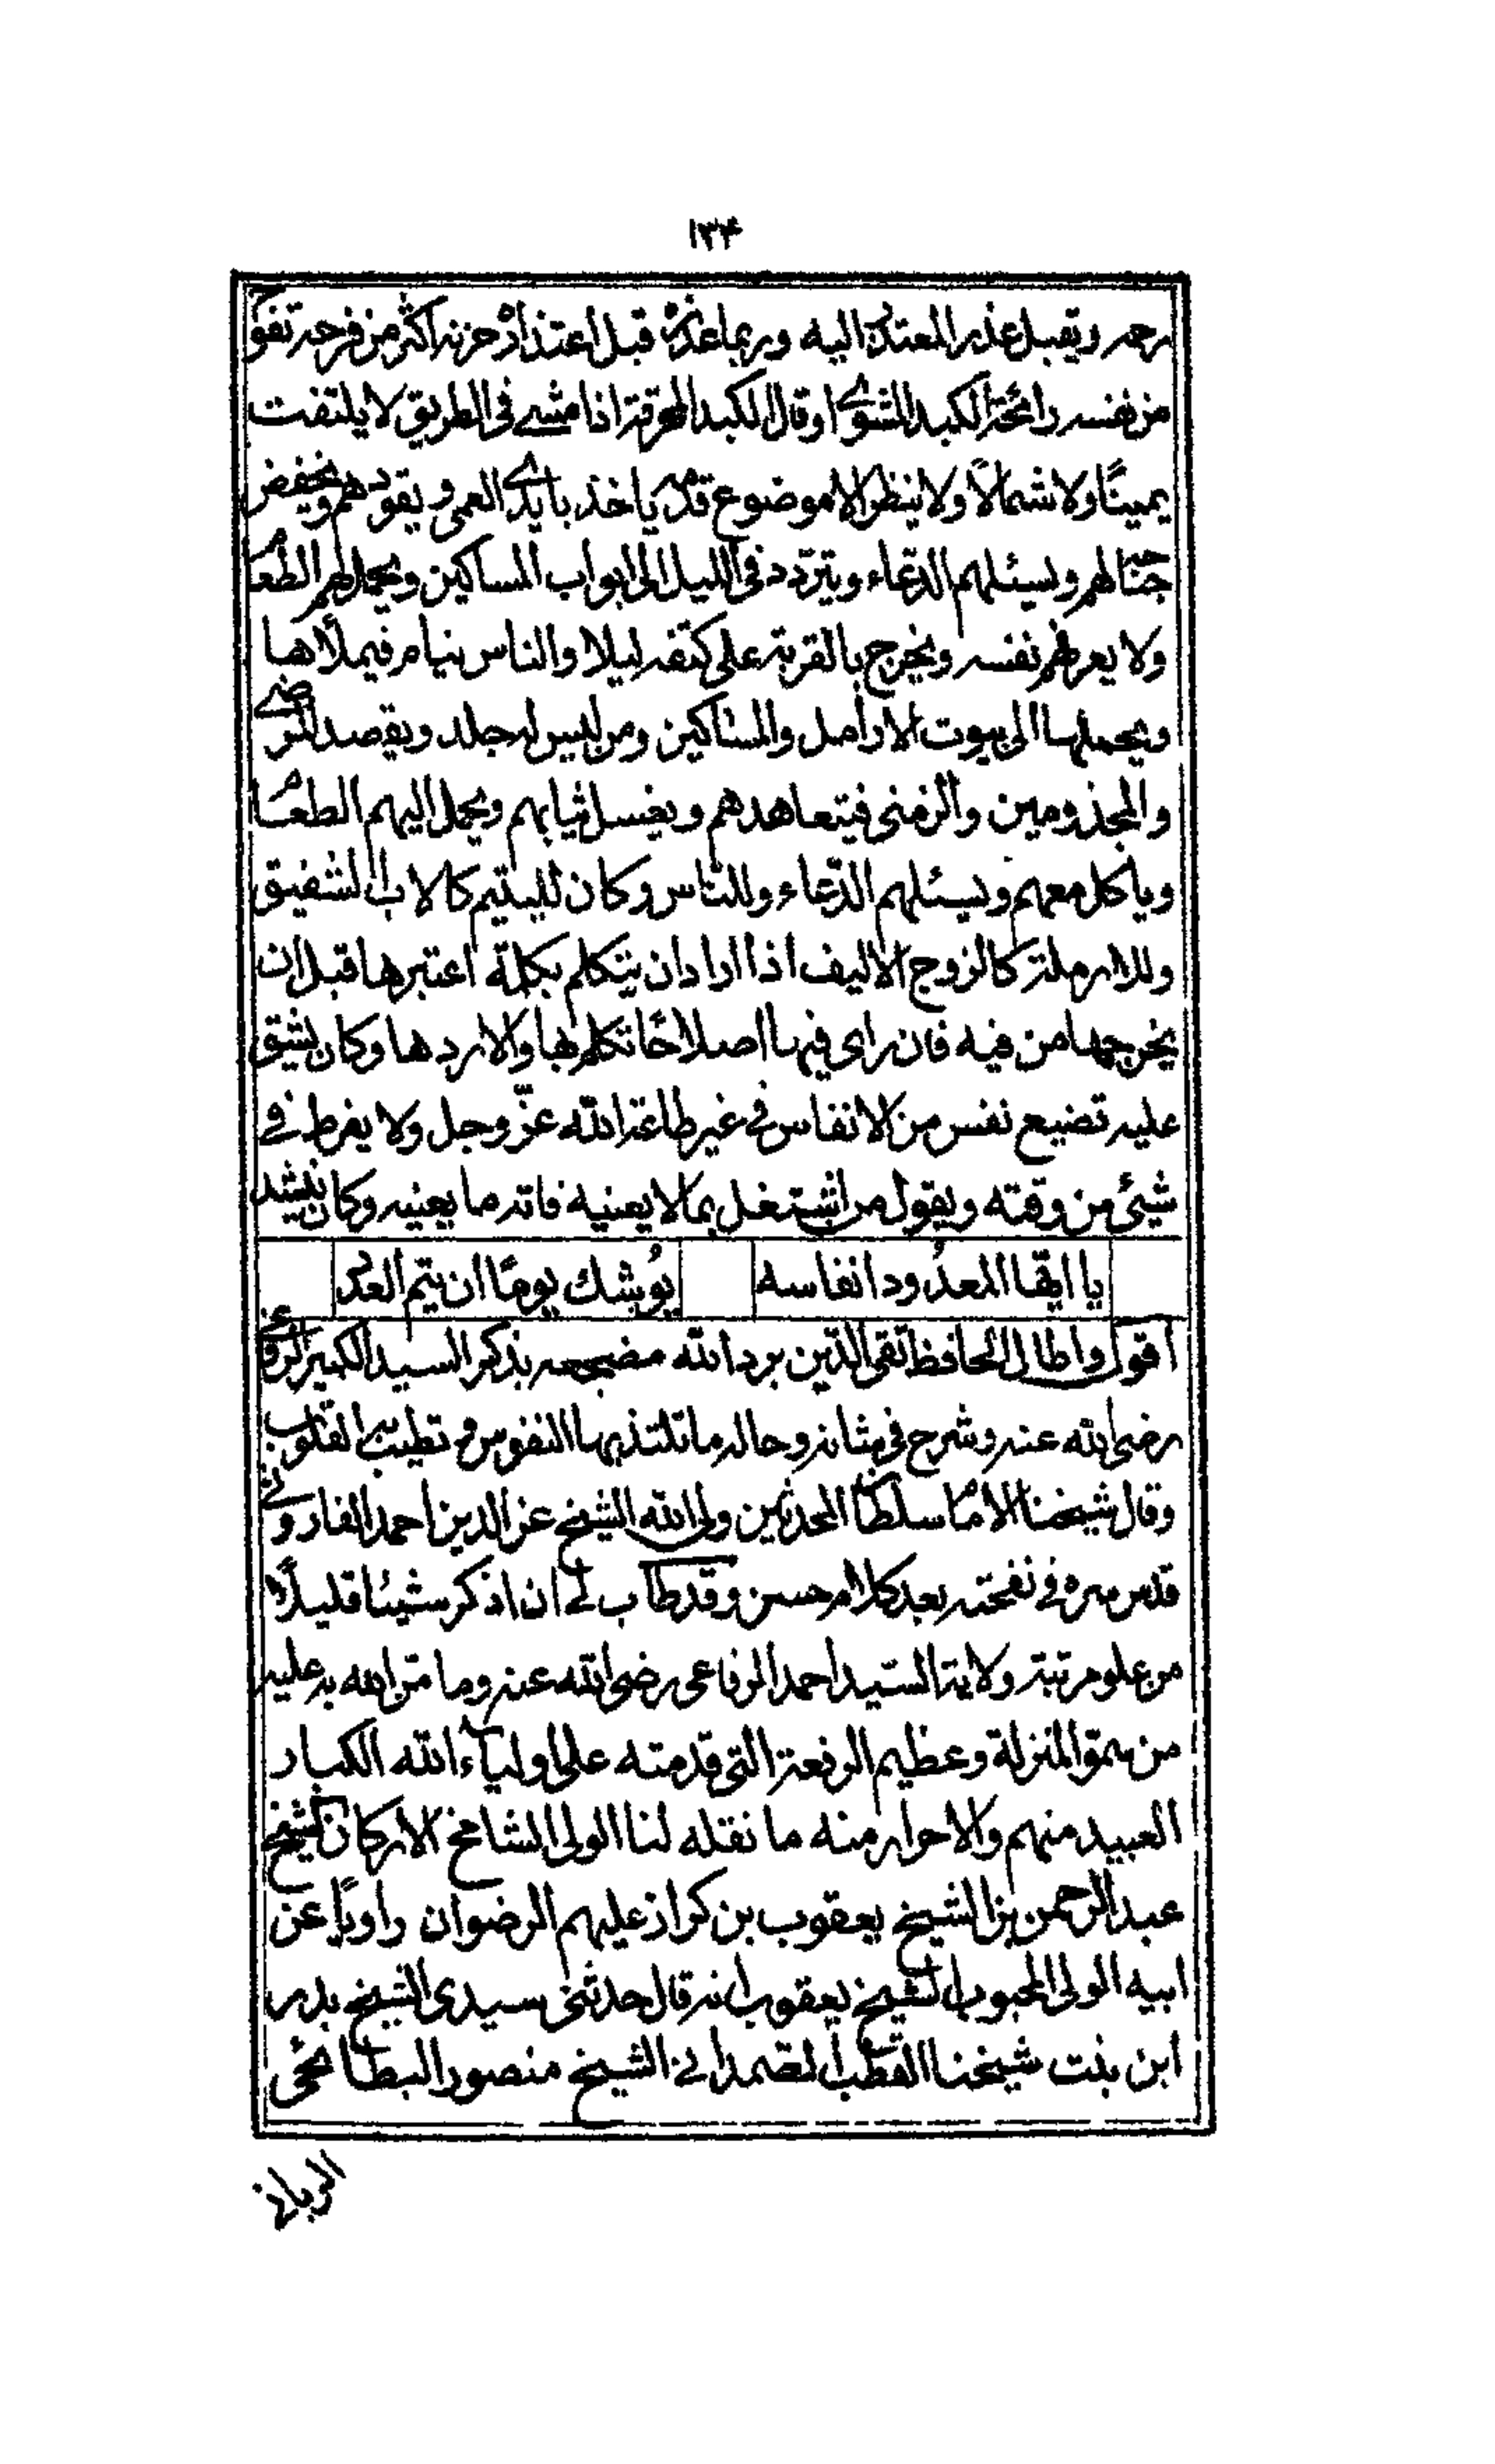 ١٣۴
رحمه ويقبل عذر المعتذر اليه وربما عذره قبل اعتذاره حزنه اكثر من فرحه تفوح
من نفسه رائحة الكبد المشوى او قال الكبد المحرقة اذا مشى فى الطريق لا يلتفت
يمينًا ولا شمالاً ولا ينظر الا موضوع قدمه ياخذ بايدى العمى و يقودهم ويخفض
جناحه لهم ويسئلهم الدعاء ويتردد فى الليل الى ابواب المساكين ويحمل لهم الطعام
ولا يعرفهم نفسه ويخرج بالقربة على كتفه ليلا والناس نيام فيملأها
ويحملها الى بيوت الارامل والمساكين ومن ليس له جلد ويقصد المرضى
والمجذومين والزمنى فيتعاهدهم ويغسل ثيابهم ويحمل اليهم الطعام
وياكل معهم ويسئلهم الدّعاء وللناس وكان لليتيم كالاب الشفيق
وللارملة كالزوج الاليف اذا اراد ان يتكلم بكلمة اعتبرها قبل ان
يخرجها من فيه فان راى فيها اصلاحًا تكلم بها والا ردها وكان يشق
عليه تضييع نفس من الانفاس فى غير طاعة الله عزّ وجل ولا يفرط فى
شيئ من وقته ويقول من اشتغل بما لا يعنيه فاته ما يعنيه وكان ينشد
يا ايّها المعدُود انفاسه يُوشك يومًا ان يتم العدد
اقول واطال الحافظ تقى الدّين برد الله مضجعه بذكر السيد الكبير الرفاعى
رضى الله عنه وشرح فى شانه وحاله ما تلتذ بها النفوس و تطيب به القلوب
وقال شيخنا الامام سلطان المحدثين ولى الله الشيخ عز الدين احمد الفاروثى
قدس سره فى نفحته بعد كلام حسن وقد طاب لى ان اذكر شيئا قليلاً
من علو مرتبة ولاية السّيد احمد الرفاعى رضى الله عنه وما منّ الله به عليه
من سمو المنزلة وعظيم الرفعة التى قدمته على اولياء الله الكبار
العبيد منهم والاحرار منه ما نقله لنا الولى الشامخ الاركان الشيخ
عبد الرحمن بن الشيخ يعقوب بن كراز عليهم الرضوان راويًا عن
ابيه الولى المحبوب الشيخ يعقوب انه قال حدثنى سيدى الشيخ بدر
ابن بنت شيخنا القطب الصمدانى الشيخ منصور البطائحى
الربانى